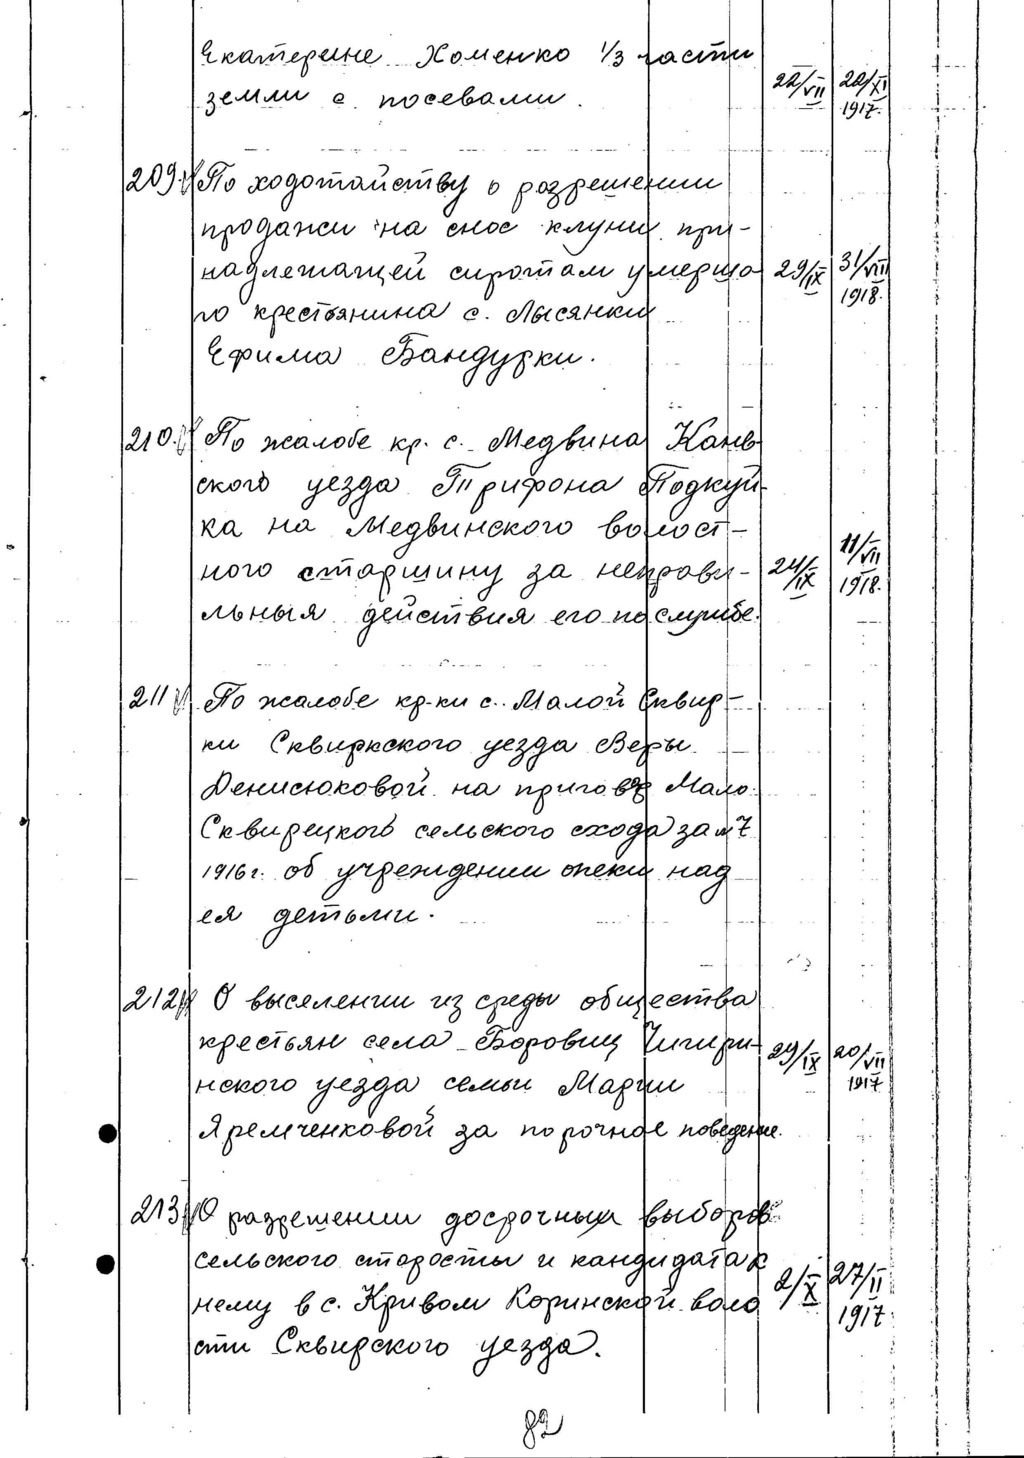 Екатерине Хоменко 1/3 части
земли с посевами. 22/VII 22/XI 1917.
209. По ходотайству о разрешении
продажи на снос клуни, при-
надлежащей сиротам умерша 29/IX 31/VIII 1918.
го крестьянина с. Лысянки
Ефима Бандурки.
210. По жалобе кр. с. Медвина Канев-
ского уезда Трифона Подкуй-
ка на Медвинского волост-
ного старшину за неправи- 24/IX 11/VII 1918.
льныя действия его по службе.
211 По жалобе кр-ки с. Малой Сквир-
ки Сквиркского уезда Веры
Денисюковой на приговор Мало
Сквирецкого сельского схода за №7
1916г. об учреждении опеки над
ея детьми.
212 О выселении из среды общества
крестьян села Боровиц Чигири- 29/IX 20/VII 1917
нского уезда семьи Марии
Яремченковой за порочное поведение.
213 О разрешении досрочных выборов
сельского старосты и кандидата к
нему в с. Кривом Коринской воло 2/X 27/II 1917
сти Сквирского уезда.
82